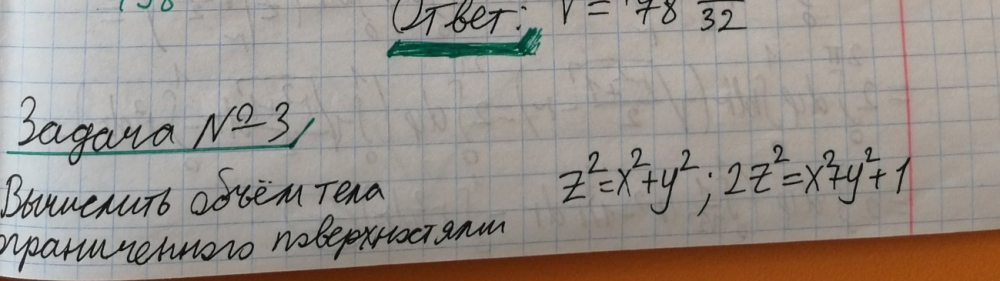 Ответ: V = 78 / 32
Задача №3
Вычислить объём тела
ограниченного поверхностями
z²=x²+y²; 2z²=x²+y²+1